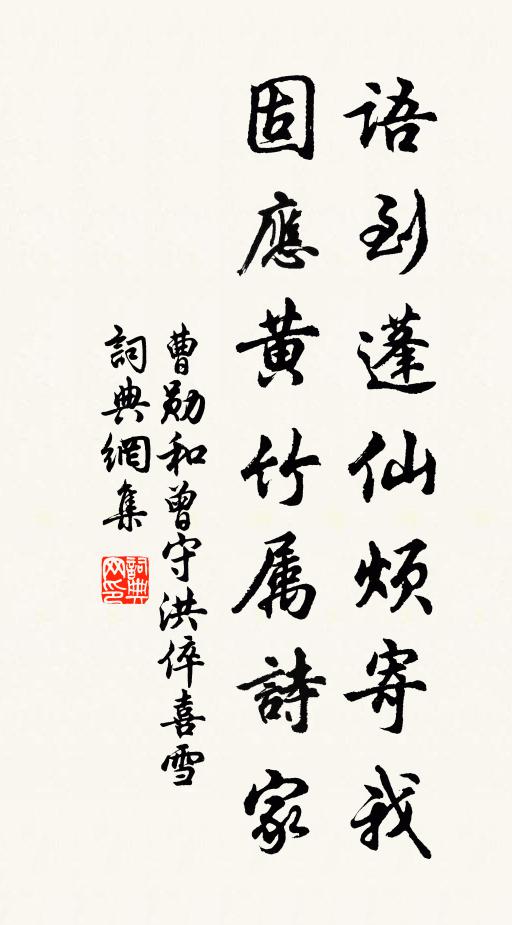 語到蓬仙煩寄我
固應黄竹属詩家
曹勛和曾守洪倅喜雪
詞典網集
詞典网印